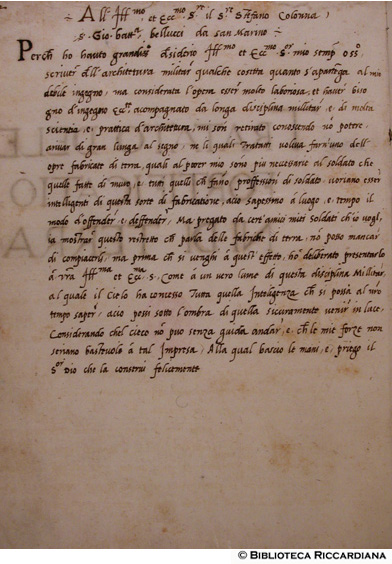 All' Ill.mo et Ecc.mo S.or il S.or Stefano Colonna
S. Gio. Batt.a bellucci da san Marino
Perch' ho hauto grandiss.o desiderio Ill.mo et Ecc.mo S.or mio semp
scriver' dell'architettura militar' qualche cosetta quanto s'apartega al mio
debile ingegno, ma considerata l'opera esser' molto laboriosa, et haver' biso
gno d'ingegno acompagnato da longa disciplina militar', e di molta
scientia, e pratica d'architettura, mi son retirato conoscendo nō potere,
arivar' di gran lunga al segno, ne li quali Trattati voleva farn'uno dell'
opre fabricate di terra, quali al parer mio sono più necessarie al soldato che
quelle fatte di muro, e tutti quelli ch' fano proffession' di soldato, vorian' esser'
intelligente di questa sorte di fabricatione, acio sapessino à luogo, e tempo il
modo d'offender' e deffender', Ma pregato da certi amici miei Soldati ch'io vogli,
la mostrar' questo restretto ch' parla delle fabriche di terra, nō posso mancar'
di compiacerli, ma prima ch' si venghi à questi effetto, ho deliberato presentarlo
à v'ra Ill.ma et Ecc.ma S. Come à un vero lume di questa disciplina Militar',
al quale il Cielo ha concesso Tutta quella Inteligenza ch' si possa al n'ro
tempo saper', acio possi sotto l'ombra di quella sicuramente venir' in luce,
Considerando ch'el cieco nō puo senza guida andar', e, ch' le mie forze non
seriano bastevole à tal Impresa, Alla qual bascio le mani, e, priego il
S.or Dio che la conservi felicemente
© BIBLIOTECA RICCARDIANA